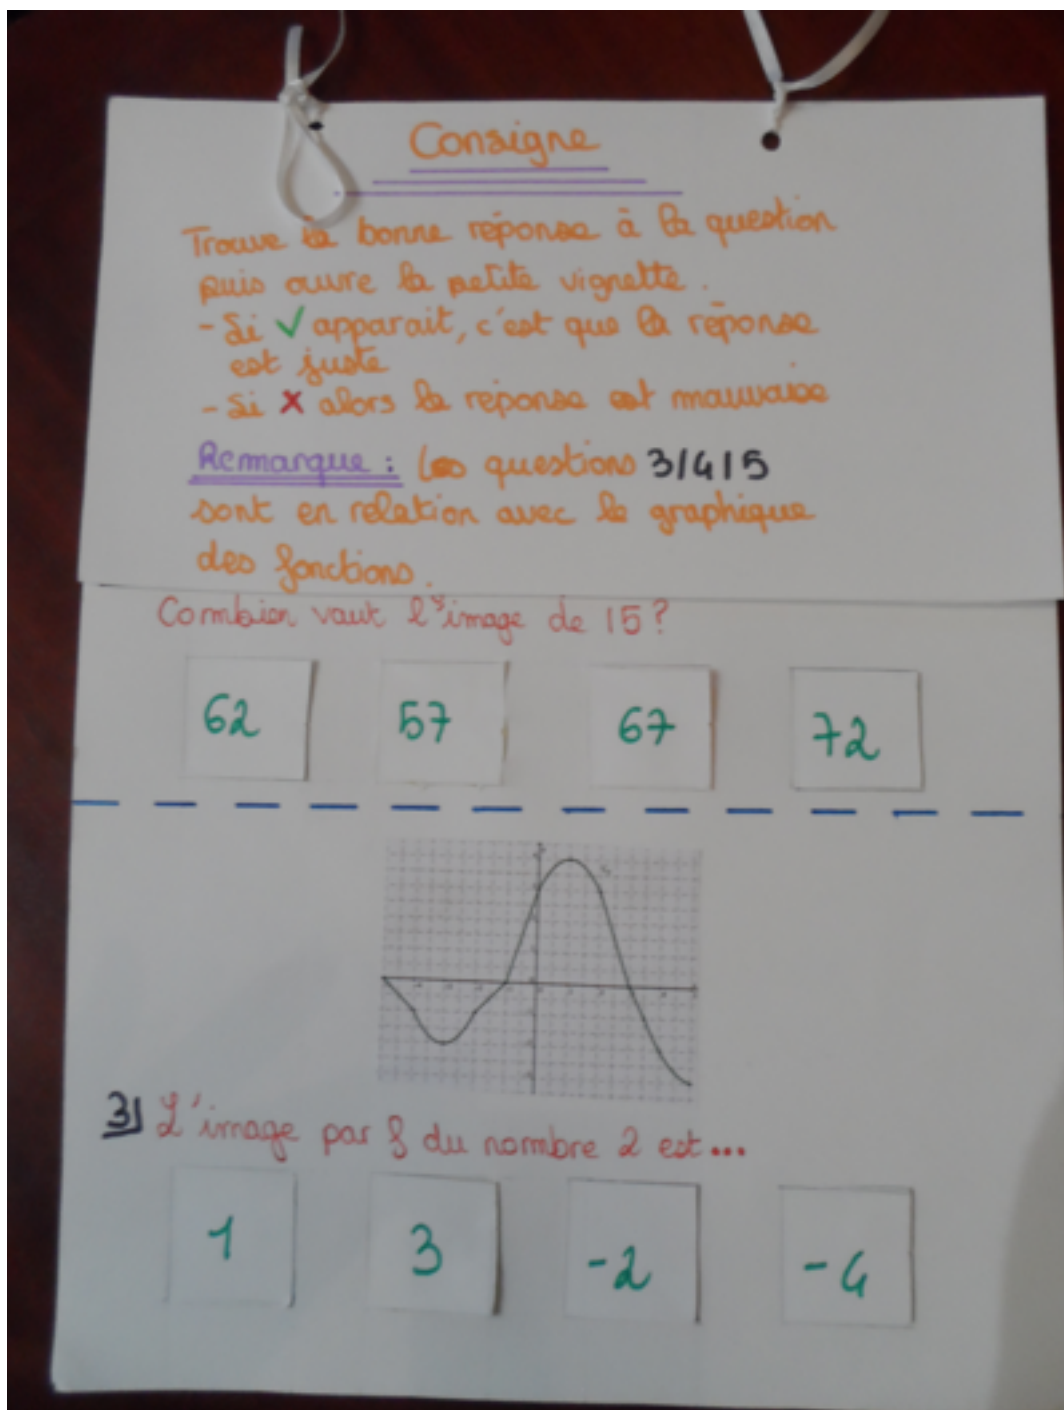 Consigne
Trouve la bonne réponse à la question
puis ouvre la petite vignette.
- Si ✓ apparait, c'est que la réponse
est juste
- Si X alors la réponse est mauvaise
Remarque : Les questions 3/4/5
sont en relation avec le graphique
des fonctions.
Combien vaut l'image de 15?
62 57 67 72
3) L'image par f du nombre 2 est...
1 3 -2 -4